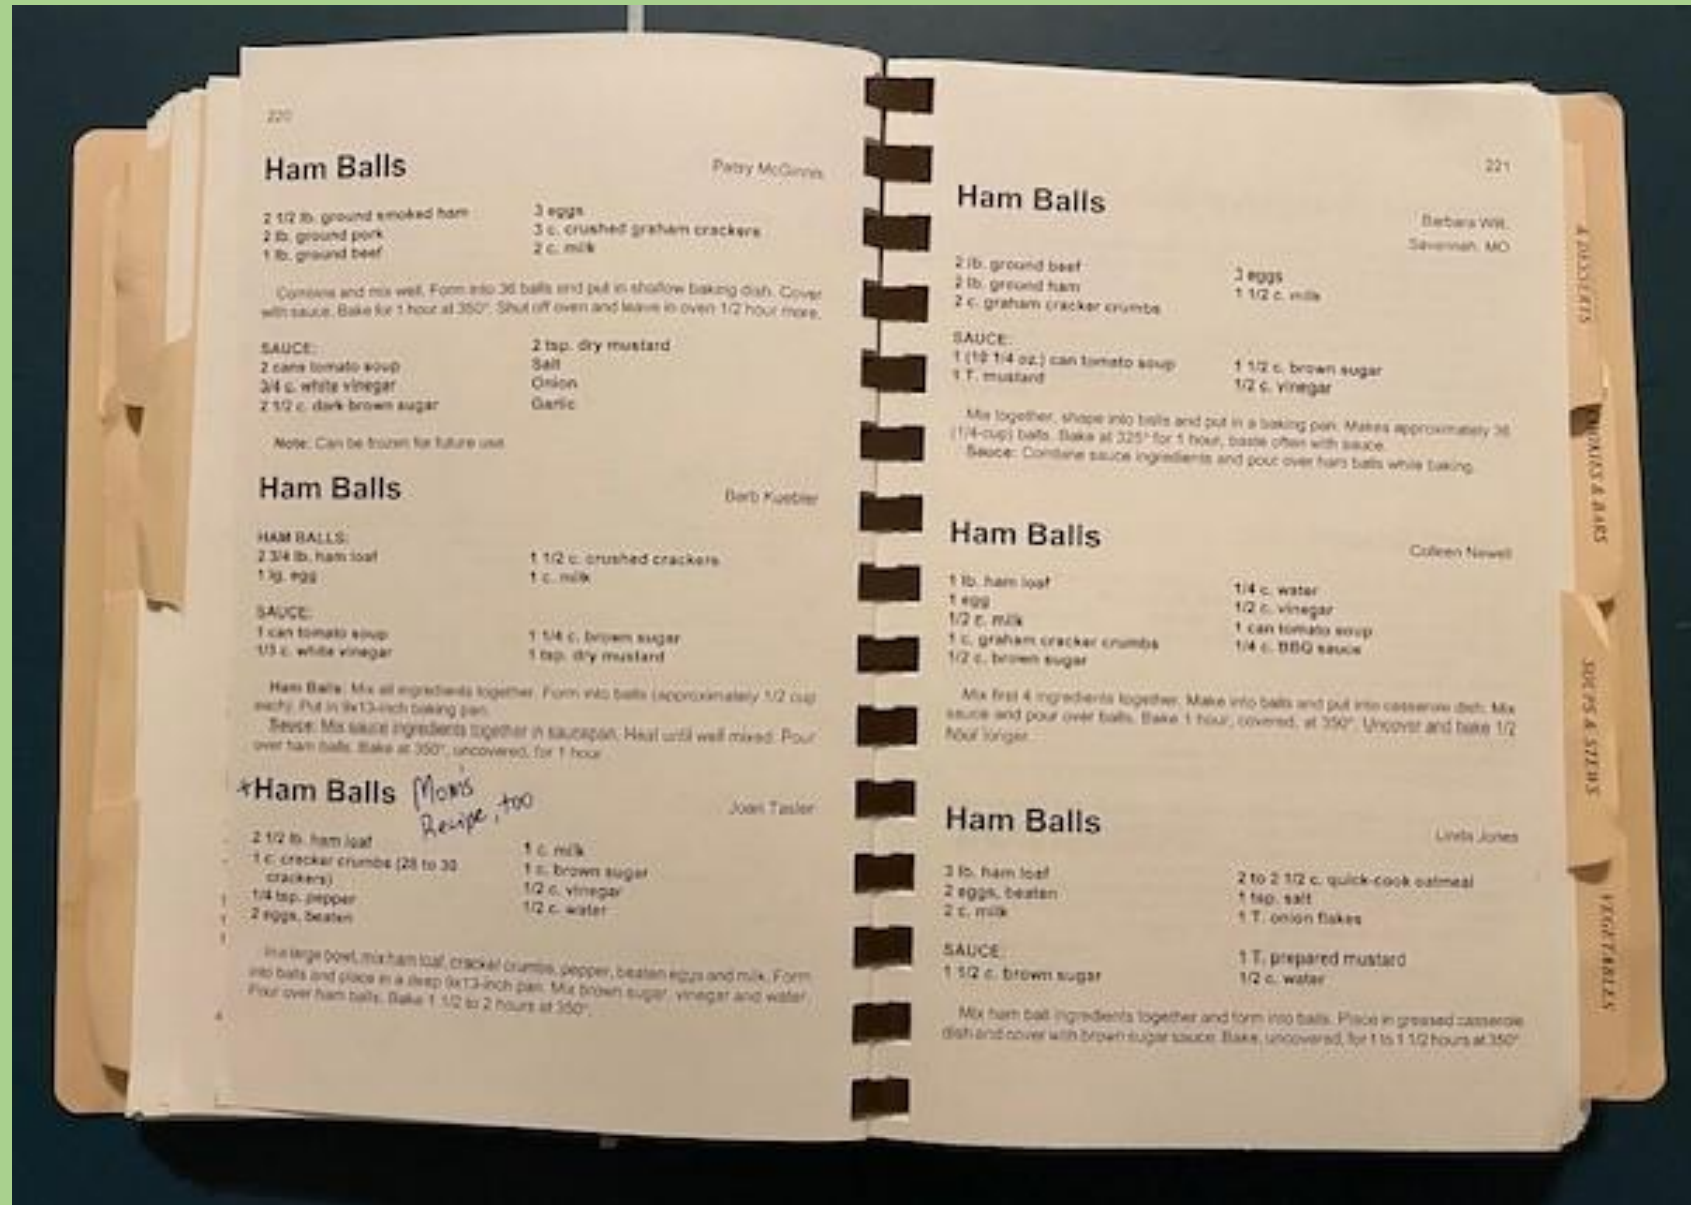 220
Ham Balls
Patsy McGinnis
2 1/2 lb. ground smoked ham
2 lb. ground pork
1 lb. ground beef
3 eggs
3 c. crushed graham crackers
2 c. milk
Combine and mix well. Form into 36 balls and put in shallow baking dish. Cover
with sauce. Bake for 1 hour at 350°. Shut off oven and leave in oven 1/2 hour more.
SAUCE:
2 cans tomato soup
3/4 c. white vinegar
2 1/2 c. dark brown sugar
2 tsp. dry mustard
Salt
Onion
Garlic
Note: Can be frozen for future use.
Ham Balls
Barb Kuebler
HAM BALLS:
2 3/4 lb. ham loaf
1 lg. egg
1 1/2 c. crushed crackers
1 c. milk
SAUCE:
1 can tomato soup
1/3 c. white vinegar
1 1/4 c. brown sugar
1 tsp. dry mustard
Ham Balls: Mix all ingredients together. Form into balls (approximately 1/2 cup
each). Put in 9x13-inch baking pan.
Sauce: Mix sauce ingredients together in saucepan. Heat until well mixed. Pour
over ham balls. Bake at 350°, uncovered, for 1 hour.
*Ham Balls Mom's
Recipe, too
Joan Tasler
2 1/2 lb. ham loaf
1 c. cracker crumbs (28 to 30
crackers)
1/4 tsp. pepper
2 eggs, beaten
1 c. milk
1 c. brown sugar
1/2 c. vinegar
1/2 c. water
In a large bowl, mix ham loaf, cracker crumbs, pepper, beaten eggs and milk. Form
into balls and place in a deep 9x13-inch pan. Mix brown sugar, vinegar and water.
Pour over ham balls. Bake 1 1/2 to 2 hours at 350°.
221
Ham Balls
Barbara Witt,
Savannah, MO
2 lb. ground beef
2 lb. ground ham
2 c. graham cracker crumbs
3 eggs
1 1/2 c. milk
SAUCE:
1 (10 1/4 oz.) can tomato soup
1 T. mustard
1 1/2 c. brown sugar
1/2 c. vinegar
Mix together, shape into balls and put in a baking pan. Makes approximately 36
(1/4-cup) balls. Bake at 325° for 1 hour, baste often with sauce.
Sauce: Combine sauce ingredients and pour over ham balls while baking.
Ham Balls
Colleen Newell
1 lb. ham loaf
1 egg
1/2 c. milk
1 c. graham cracker crumbs
1/2 c. brown sugar
1/4 c. water
1/2 c. vinegar
1 can tomato soup
1/4 c. BBQ sauce
Mix first 4 ingredients together. Make into balls and put into casserole dish. Mix
sauce and pour over balls. Bake 1 hour, covered, at 350°. Uncover and bake 1/2
hour longer.
Ham Balls
Linda Jones
3 lb. ham loaf
2 eggs, beaten
2 c. milk
2 to 2 1/2 c. quick-cook oatmeal
1 tsp. salt
1 T. onion flakes
SAUCE:
1 1/2 c. brown sugar
1 T. prepared mustard
1/2 c. water
Mix ham ball ingredients together and form into balls. Place in greased casserole
dish and cover with brown sugar sauce. Bake, uncovered, for 1 to 1 1/2 hours at 350°.
& DESSERTS
& BARS
SOUPS & STEWS
VEGETABLES